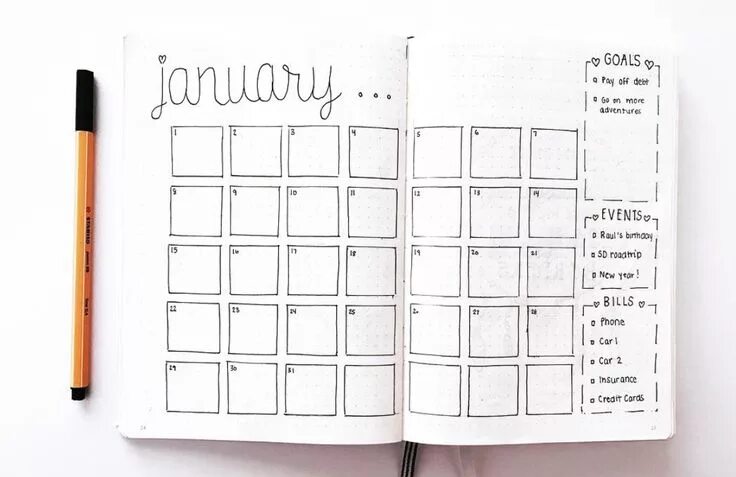 january ...
1 2 3 4 5 6 7
8 9 10 11 12 13 14
15 16 17 18 19 20 21
22 23 24 25 26 27 28
29 30 31
GOALS
Pay off debt
Go on more
adventures
EVENTS
Raul's birthday
SD roadtrip
New year!
BILLS
Phone
Car 1
Car 2
Insurance
Credit Cards
STABILO